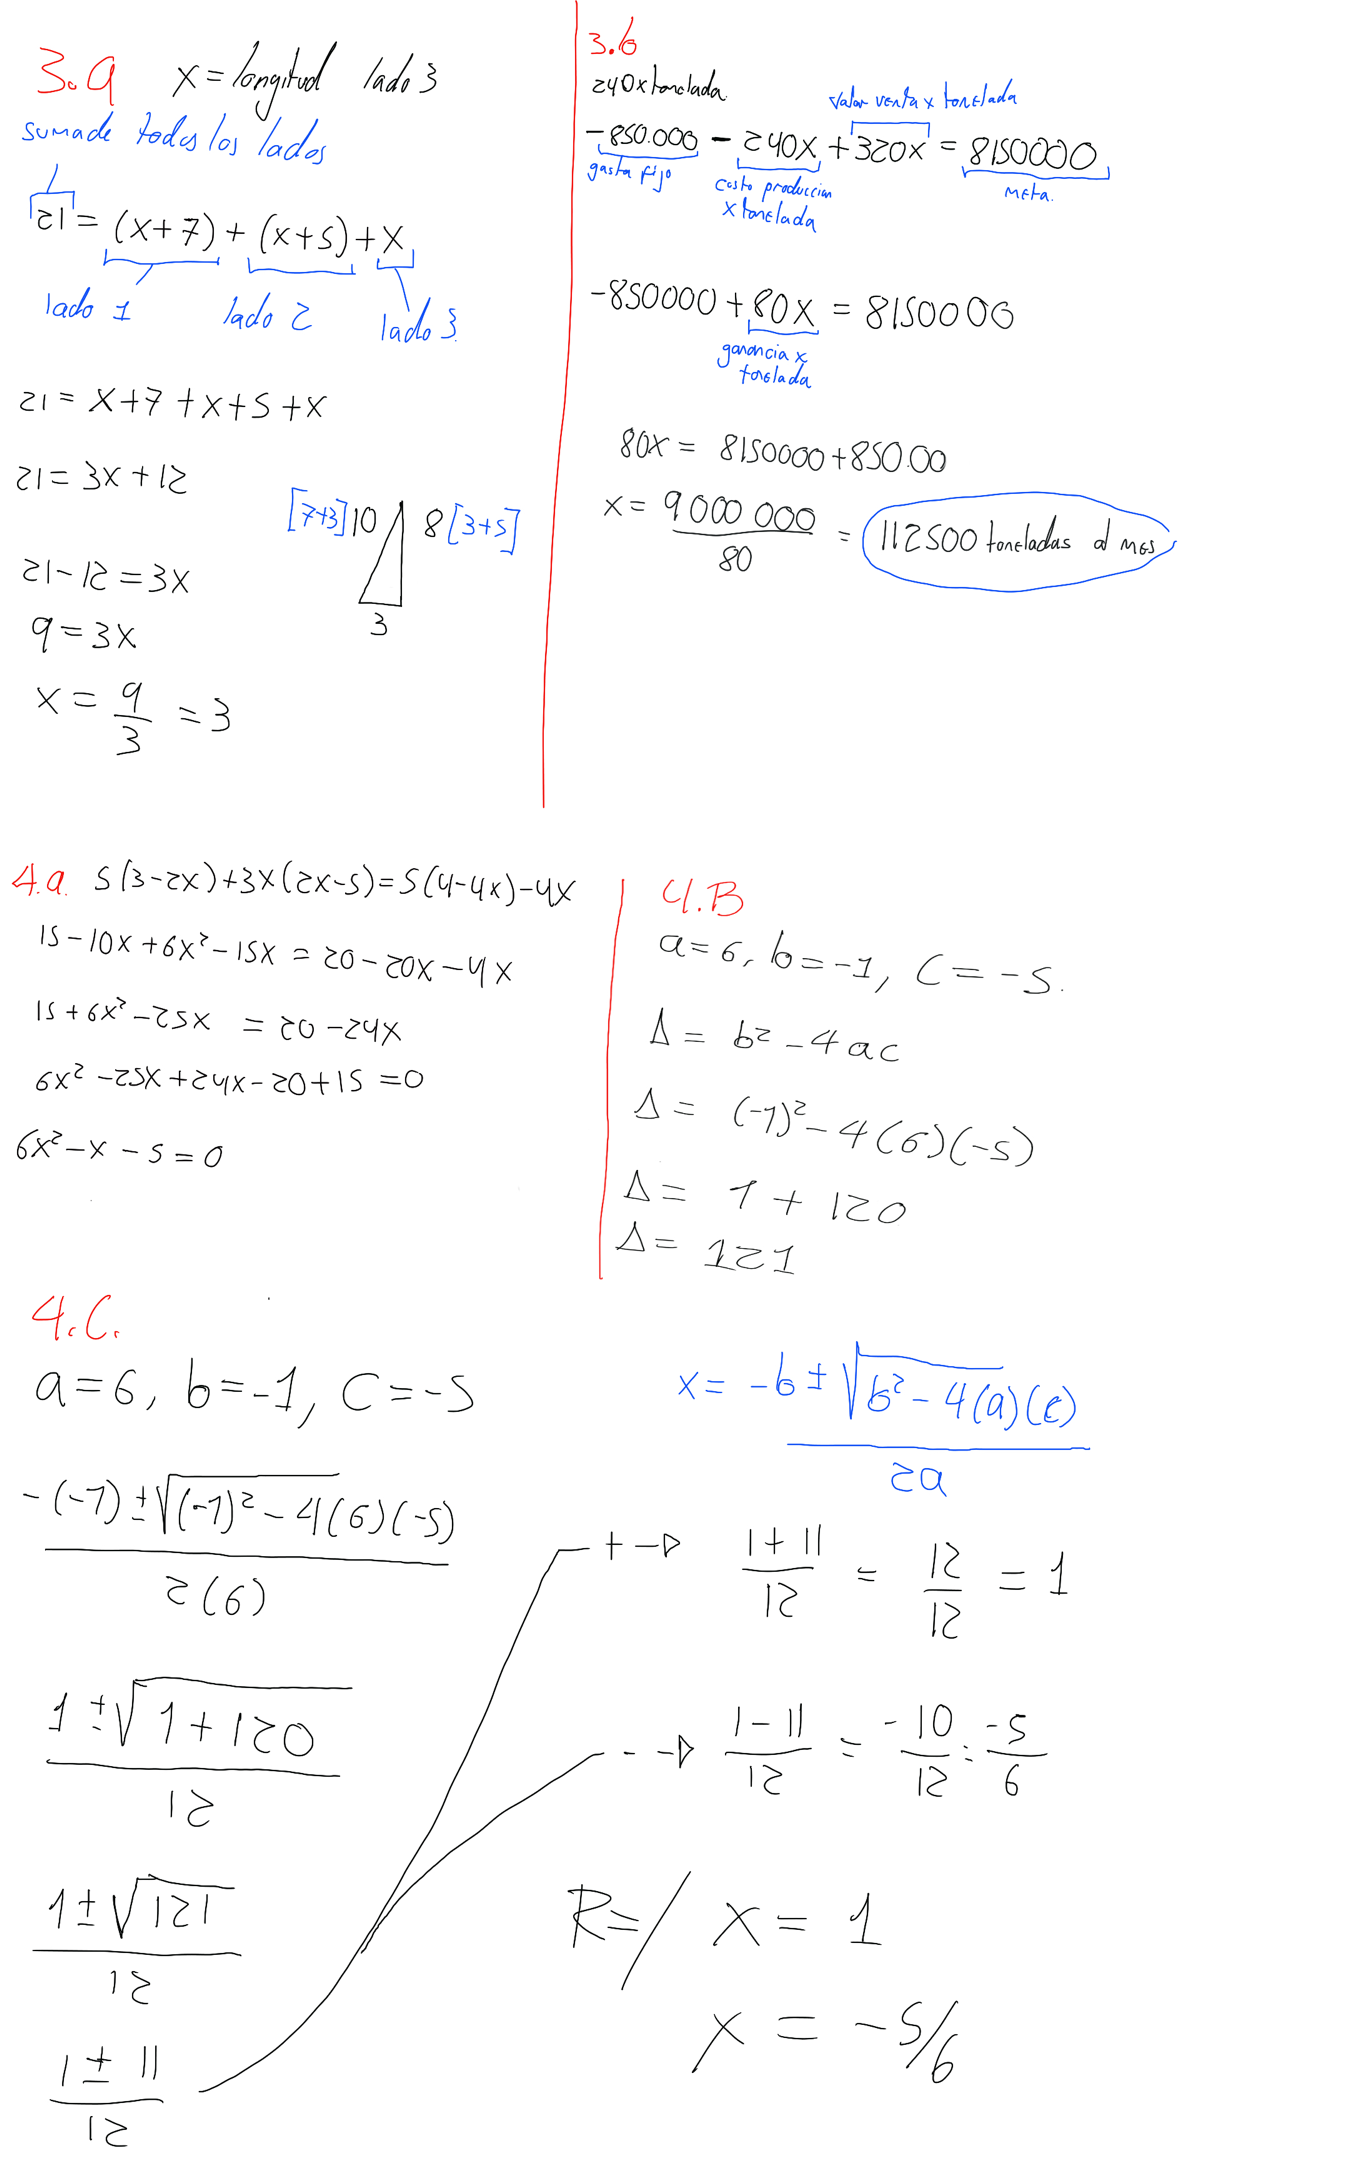 3.a x = longitud lado 3
suma de todos los lados
21 = (x+7) + (x+5) + x
lado 1 lado 2 lado 3.
21 = x+7 + x+5 + x
21 = 3x + 12
[7+3] 10 8 [3+5]
3
21-12 = 3x
9 = 3x
x = 9/3 = 3
3.b
240 x tonelada.
valor venta x tonelada
-850.000 - 240x + 320x = 8150000
gasta fijo costo produccion x tonelada meta.
-850000 + 80x = 8150000
ganancia x
tonelada
80x = 8150000+850.00
x = 9000 000/80 = 112500 toneladas al mes
4.a. 5(3-2x)+3x(2x-5)=5(4-4x)-4x
15-10x+6x²-15x = 20-20x-4x
15+6x²-25x = 20-24x
6x²-25x+24x-20+15 = 0
6x²-x-5=0
4.B
a=6, b=-1, C=-5.
Δ = b²-4ac
Δ = (-1)²-4(6)(-5)
Δ = 1 + 120
Δ = 121
4.C.
a=6, b=-1, C=-5
x = -b ± √b²-4(a)(c)
2a
-(-1) ± √(-1)²-4(6)(-5)
2(6)
1 ± √1+120
12
1 ± √121
12
1 ± 11
12
+ → 1+11/12 = 12/12 = 1
- → 1-11/12 = -10/12 = -5/6
R=/ x = 1
x = -5/6